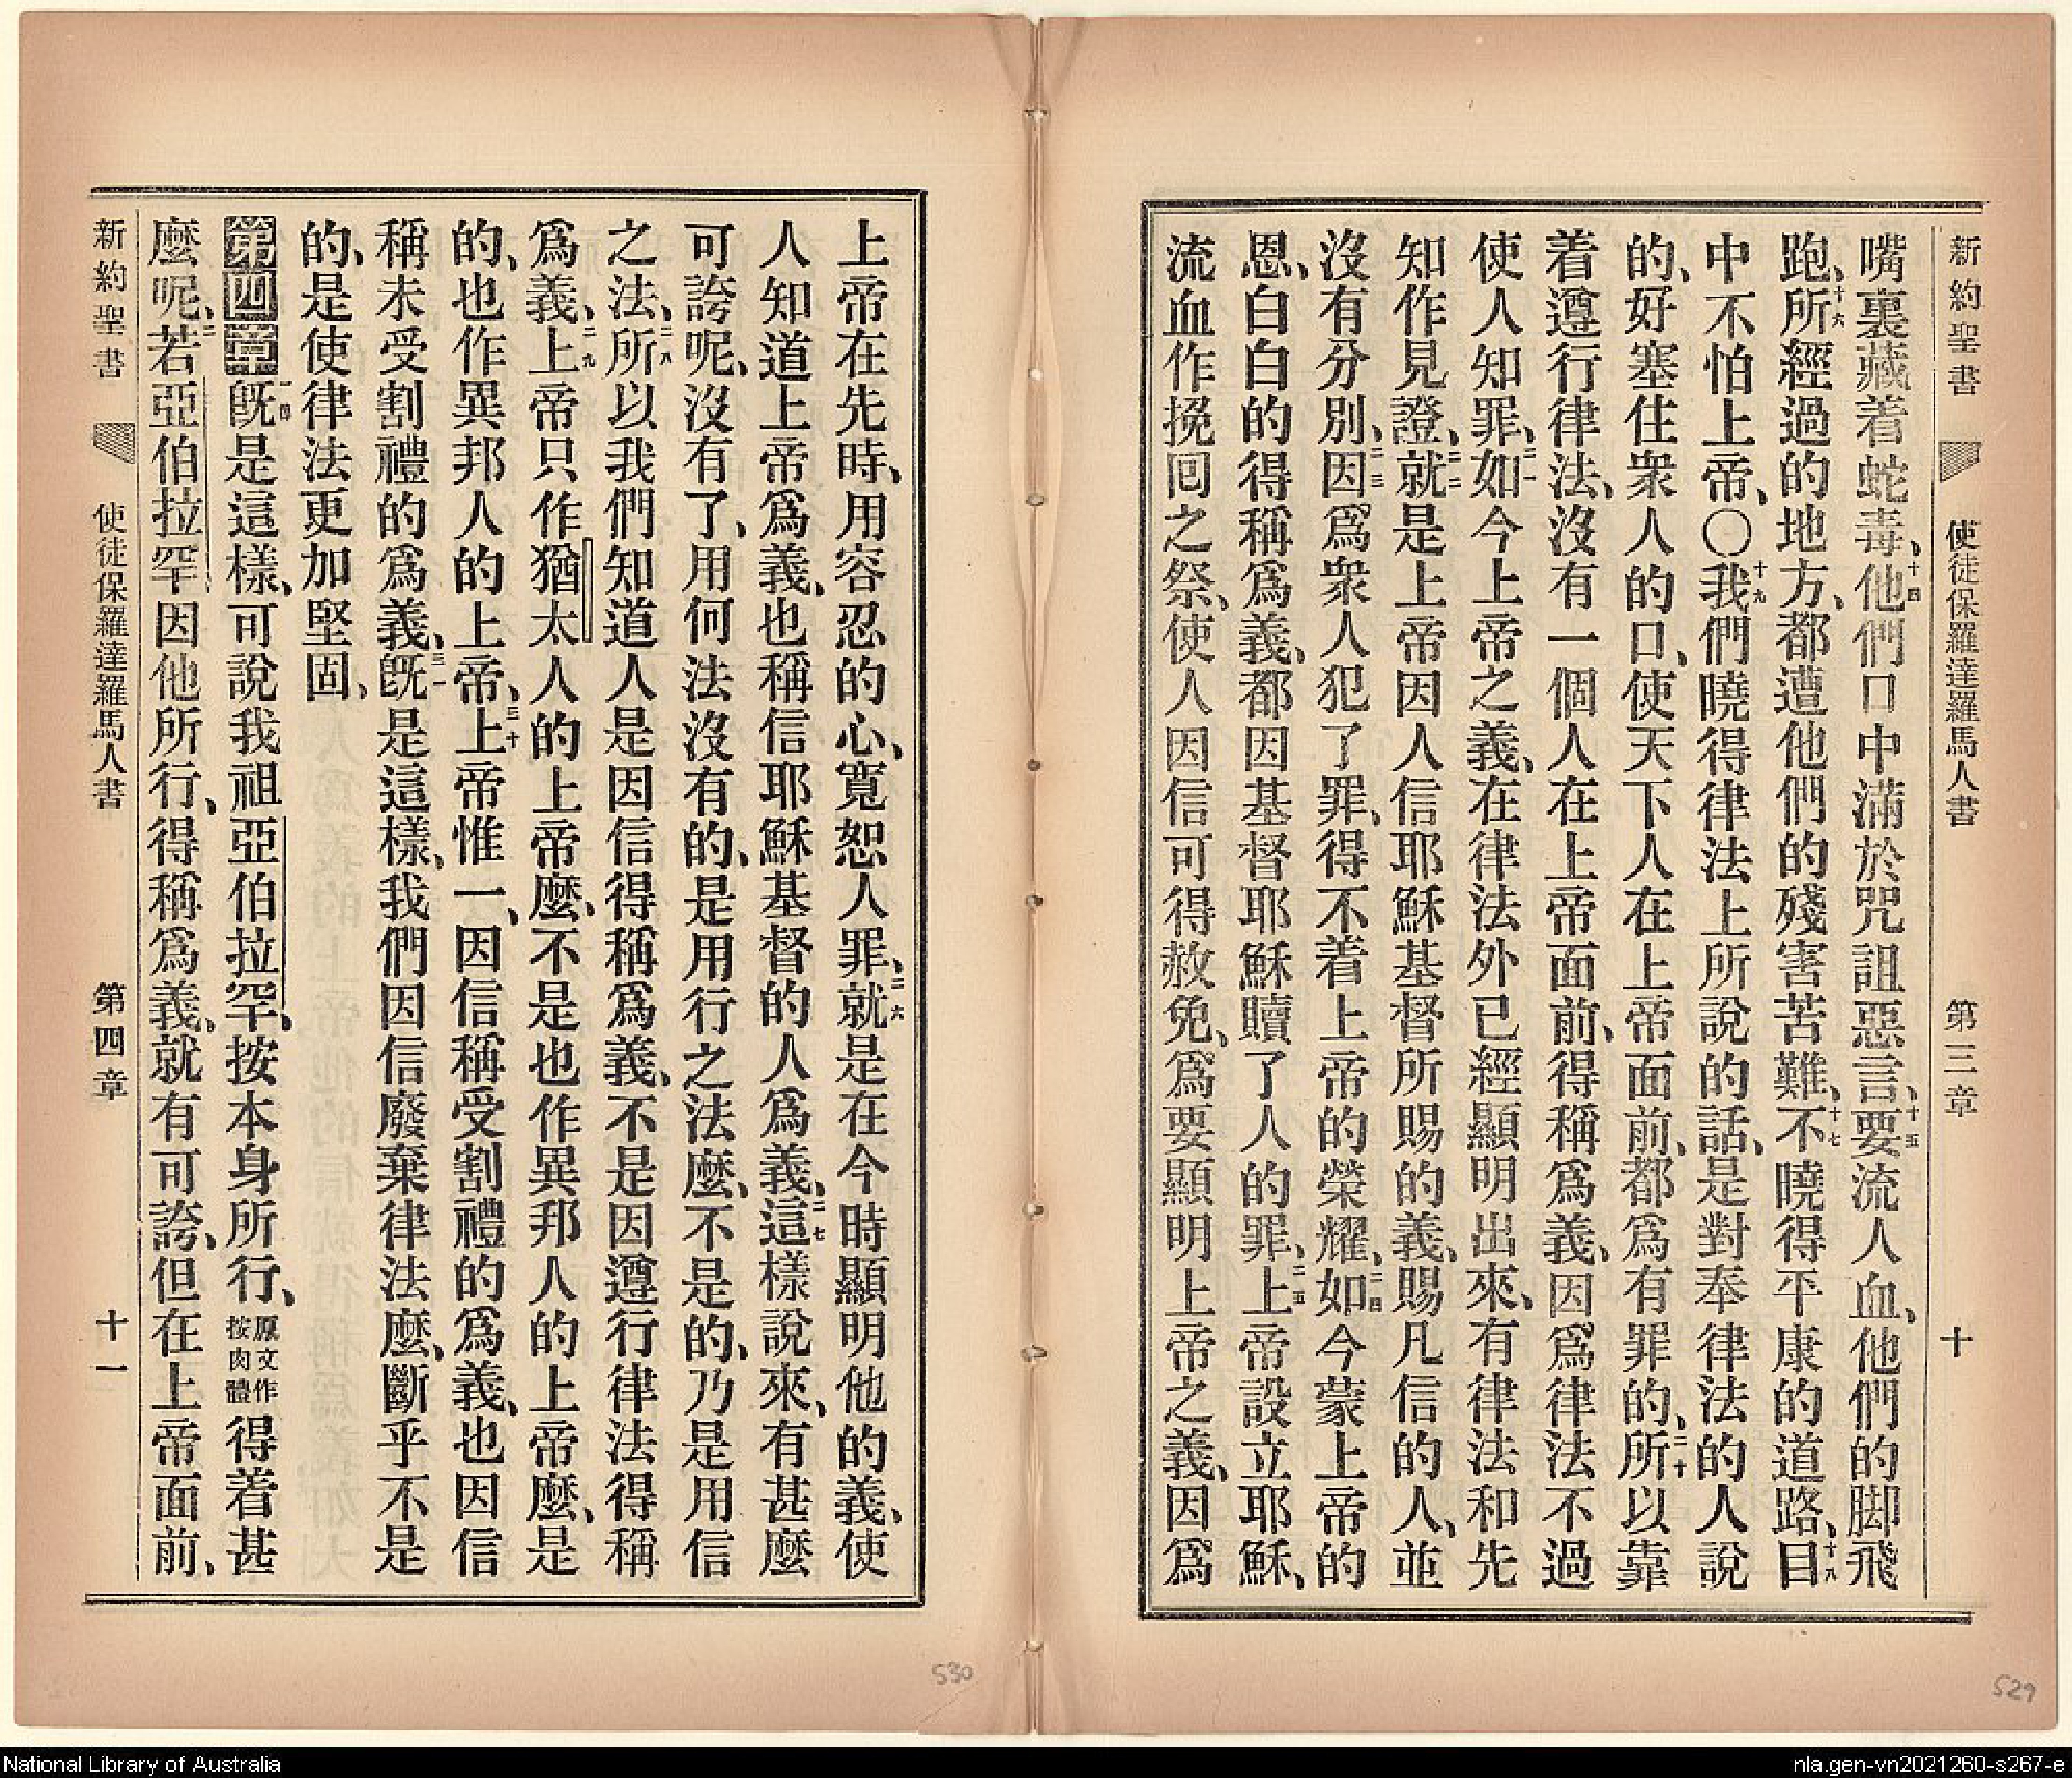 新約聖書 使徒保羅達羅馬人書 第三章 十
嘴裏藏着蛇毒、十四他們口中滿於咒詛惡言、十五要流人血、他們的脚飛
跑、十六所經過的地方、都遭他們的殘害苦難、十七不曉得平康的道路、十八目
中不怕上帝、〇十九我們曉得律法上所說的話、是對奉律法的人說
的、好塞住衆人的口、使天下人在上帝面前、都爲有罪的、二十所以靠
着遵行律法、沒有一個人在上帝面前、得稱爲義、因爲律法不過
使人知罪、二一如今上帝之義、在律法外已經顯明出來、有律法和先
知作見證、二二就是上帝因人信耶穌基督所賜的義、賜凡信的人、並
沒有分別、二三因爲衆人犯了罪、得不着上帝的榮耀、二四如今蒙上帝的
恩、白白的得稱爲義、都因基督耶穌贖了人的罪、二五上帝設立耶穌、
流血作挽回之祭、使人因信可得赦免、爲要顯明上帝之義、因爲
上帝在先時、用容忍的心、寬恕人罪、二六就是在今時顯明他的義、使
人知道上帝爲義、也稱信耶穌基督的人爲義、二七這樣說來、有甚麼
可誇呢、沒有了、用何法沒有的、是用行之法麼、不是的、乃是用信
之法、二八所以我們知道人是因信得稱爲義、不是因遵行律法得稱
爲義、二九上帝只作猶太人的上帝麼、不是也作異邦人的上帝麼、是
的、也作異邦人的上帝、三十上帝惟一、因信稱受割禮的爲義、也因信
稱未受割禮的爲義、三一旣是這樣、我們因信廢棄律法麼、斷乎不是
的、是使律法更加堅固、
第四章 一四旣是這樣、可說我祖亞伯拉罕、按本身所行、原文作按肉體得着甚
麼呢、二若亞伯拉罕因他所行、得稱爲義、就有可誇、但在上帝面前、
新約聖書 使徒保羅達羅馬人書 第四章 十一
530
529
National Library of Australia
nla.gen-vn2021260-s267-e